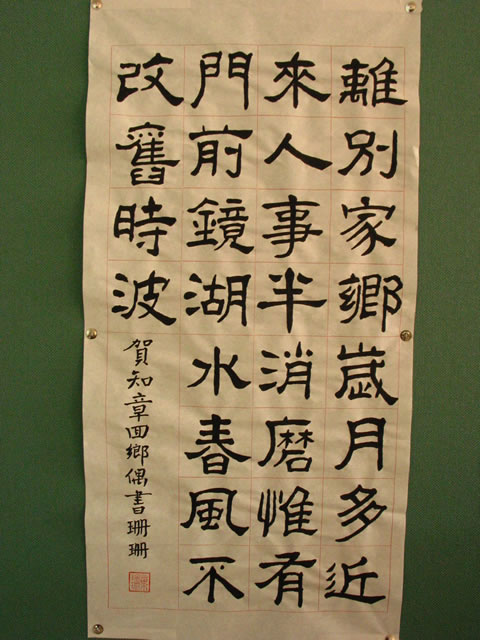 離別家鄉歲月多近
來人事半消磨惟有
門前鏡湖水春風不
改舊時波
賀知章回鄉偶書珊珊